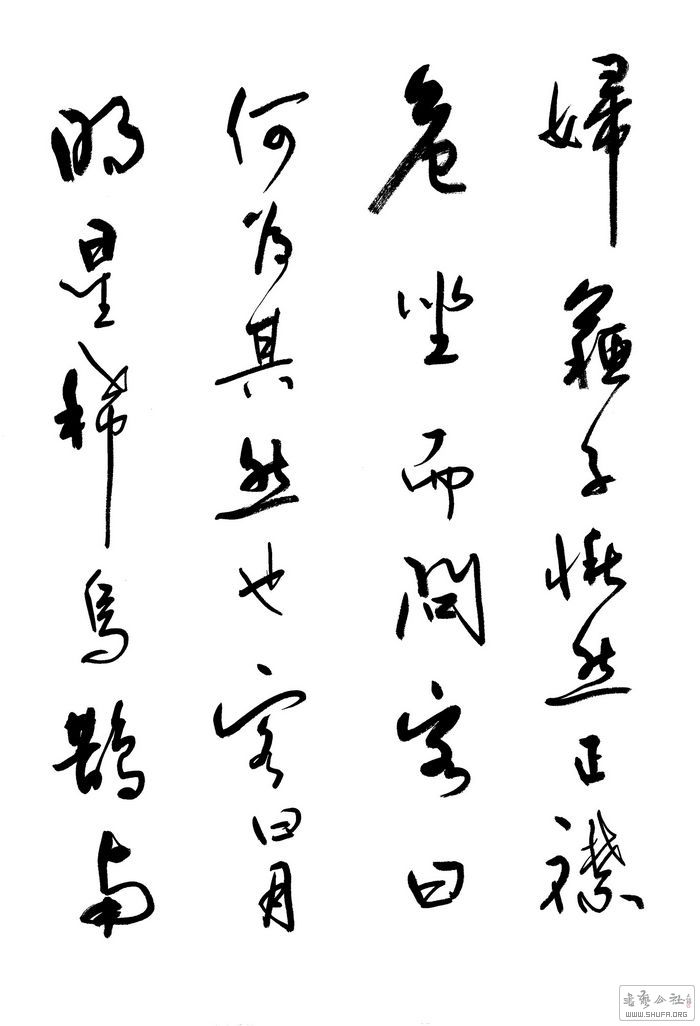 婦蘇子愀然正襟
危坐而問客曰
何為其然也客曰月
明星稀烏鵲南
书艺公社
WWW.SHUFA.ORG